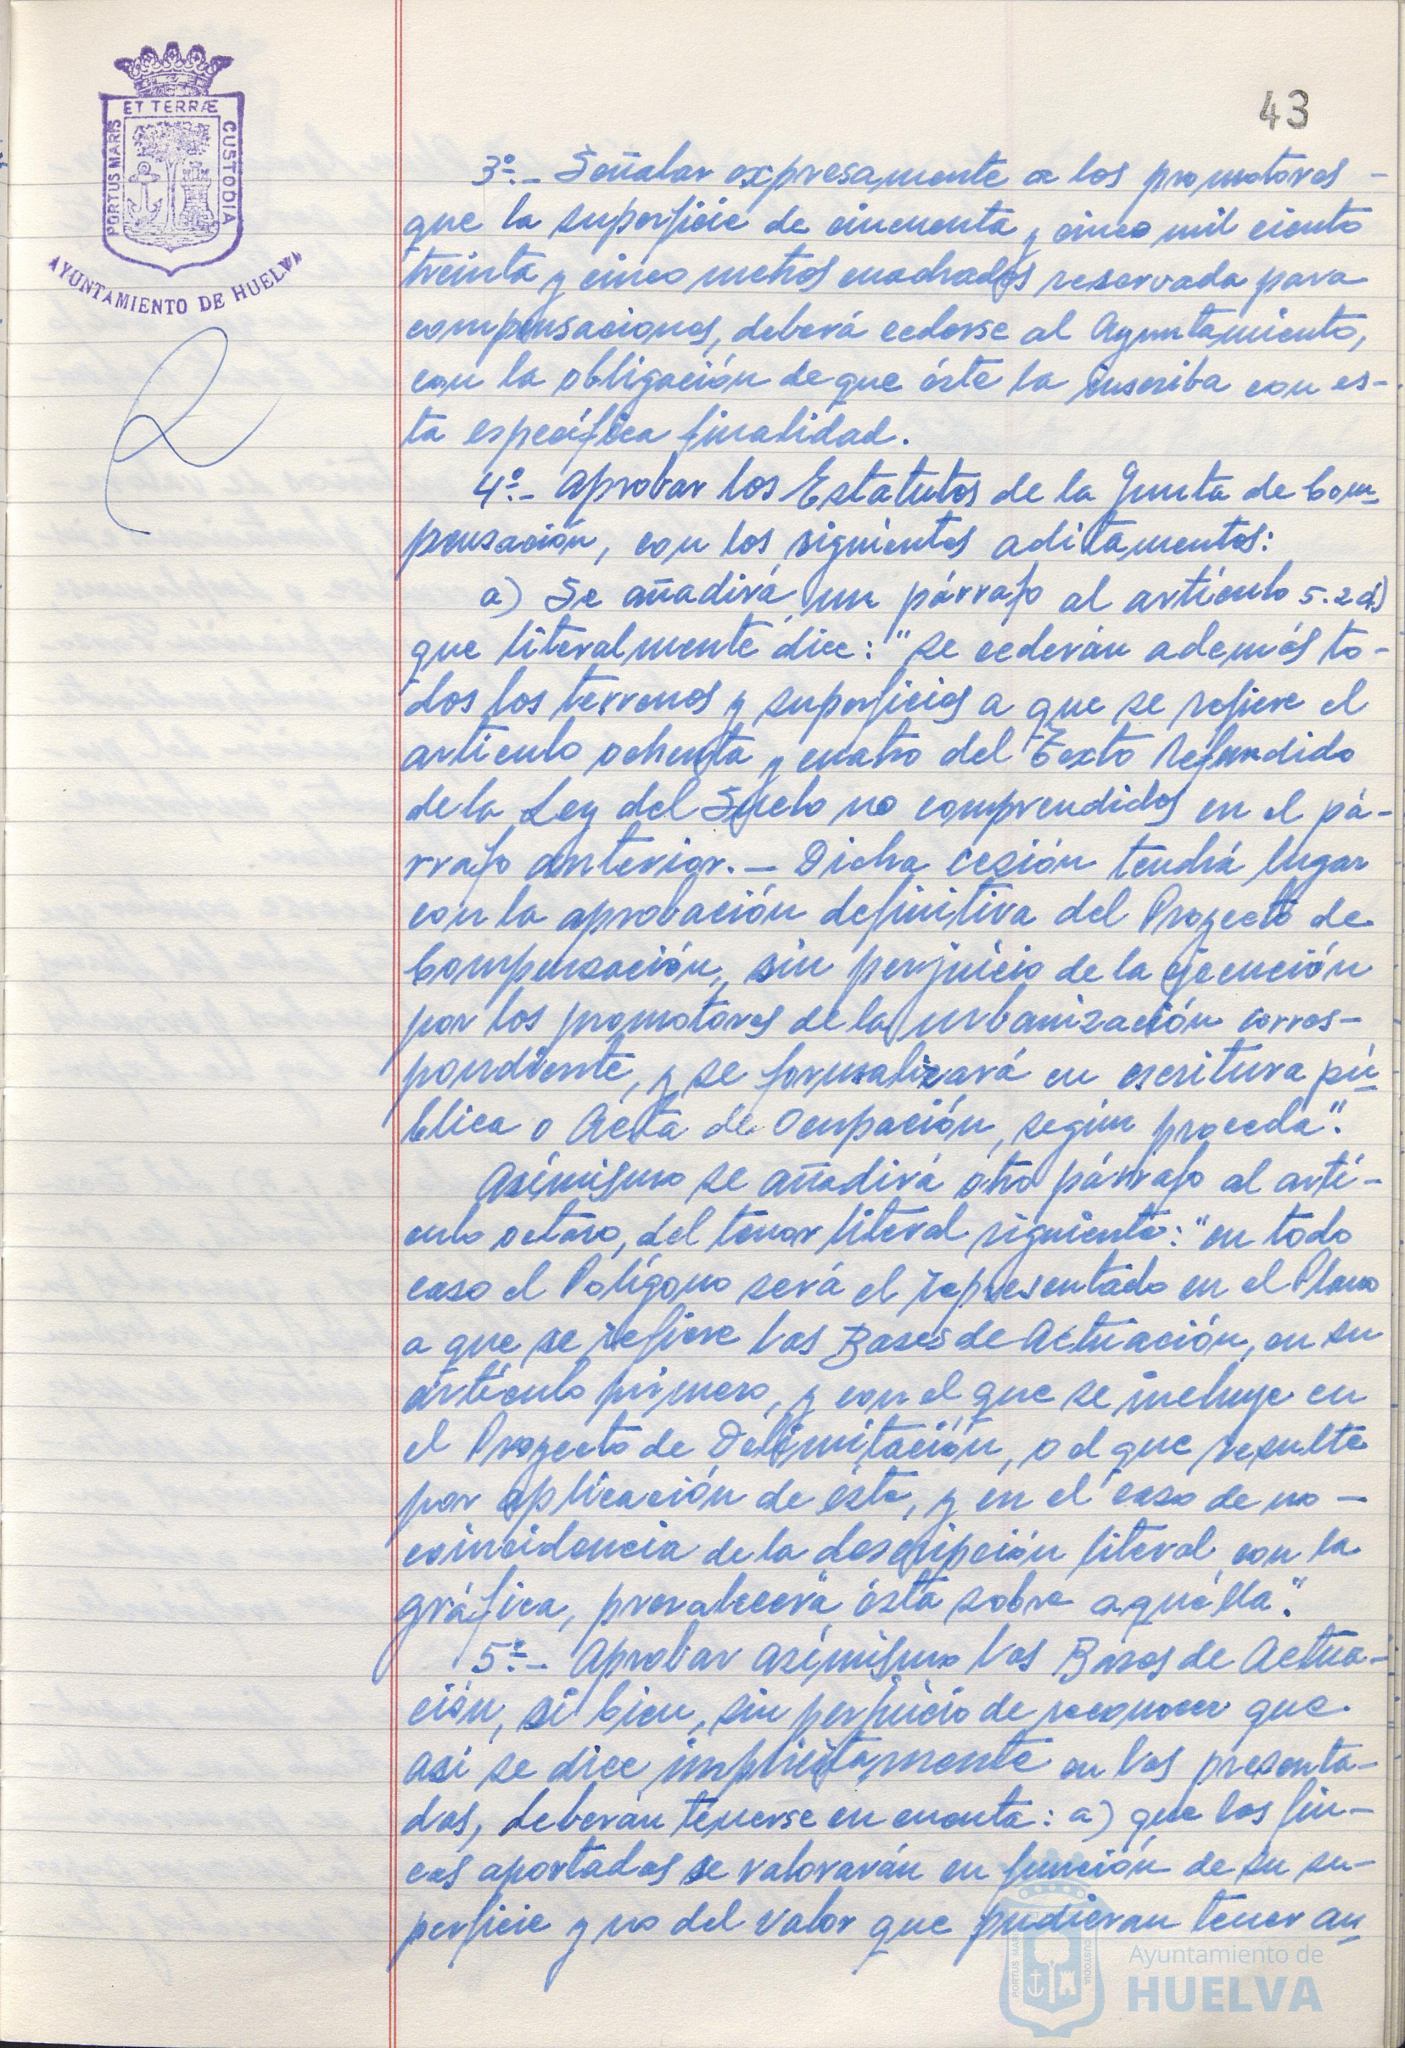 ET TERRÆ
PORTUS MARIS
CUSTODIA
AYUNTAMIENTO DE HUELVA
43
3º.- Señalar expresamente a los promotores -
que la superficie de cincuenta y cinco mil ciento
treinta y cinco metros cuadrados reservada para
compensaciones, deberá cederse al Ayuntamiento,
con la obligación de que éste la inscriba con es-
ta específica finalidad.
4º.- Aprobar los Estatutos de la Junta de Com-
pensación, con los siguientes aditamentos:
a) Se añadirá un párrafo al artículo 5.2 d)
que literalmente dice: "se cederán además to-
dos los terrenos y superficies a que se refiere el
artículo ochenta y cuatro del Texto Refundido
de la Ley del Suelo no comprendidos en el pá-
rrafo anterior. - Dicha cesión tendrá lugar
con la aprobación definitiva del Proyecto de
Compensación, sin perjuicio de la ejecución
por los promotores de la urbanización corres-
pondiente, y se formalizará en escritura pú-
blica o Acta de Ocupación, según proceda".
Asímismo se añadirá otro párrafo al artí-
culo octavo, del tenor literal siguiente: "en todo
caso el Polígono será el representado en el Plano
a que se refiere las Bases de Actuación, en su
artículo primero, y con el que se incluye en
el Proyecto de Delimitación, o el que resulte
por aplicación de éste, y en el caso de no -
coincidencia de la descripción literal con la
gráfica, prevalecerá ésta sobre aquélla".
5º.- Aprobar asímismo las Bases de Actua-
ción, si bien, sin perjuicio de reconocer que
así se dice implícitamente en las presenta-
das, deberán tenerse en cuenta: a) que las fin-
cas aportadas se valorarán en función de su su-
perficie y no del valor que pudieran tener an-
Ayuntamiento de
HUELVA